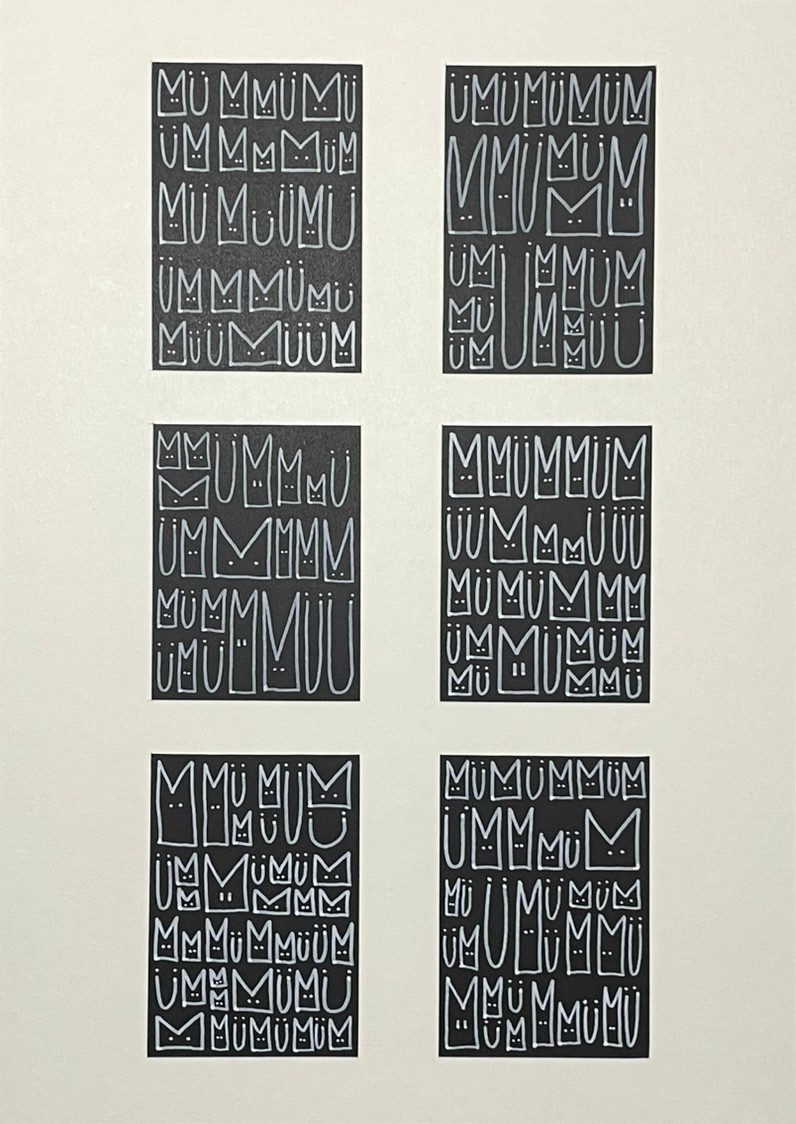 MÜ MMÜMÜ
ÜMMMMÜM
MÜ MÜÜMÜ
ÜMMMÜMÜ
MÜÜMÜÜM
ÜMÜMÜMÜM
MMÜMÜM
M
ÜMÜMMÜM
MÜMMÜÜ
ÜMM
MMÜMMMÜ
M
ÜMMMMM
MÜMMMÜÜ
ÜMÜ
MMÜMMÜM
ÜÜMMMÜÜÜ
MÜMÜMMM
ÜMMÜMÜM
MÜMMÜ
MMÜMÜM
MÜÜ
ÜMMÜMÜM
MMMM
MMMÜMMÜÜM
ÜMMMÜMÜ
M
MMÜMÜMÜM
MÜMÜMMÜM
ÜMMMÜM
MÜÜMÜMÜM
ÜMÜMMÜ
MMÜMMÜMÜ
ÜM